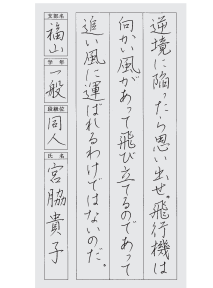 逆境に陥ったら思い出せ。飛行機は
向かい風があって飛び立てるのであって
追い風に運ばれるわけではないのだ。
支部名
福山
学年
一般
段級位
同人
氏名
宮脇貴子